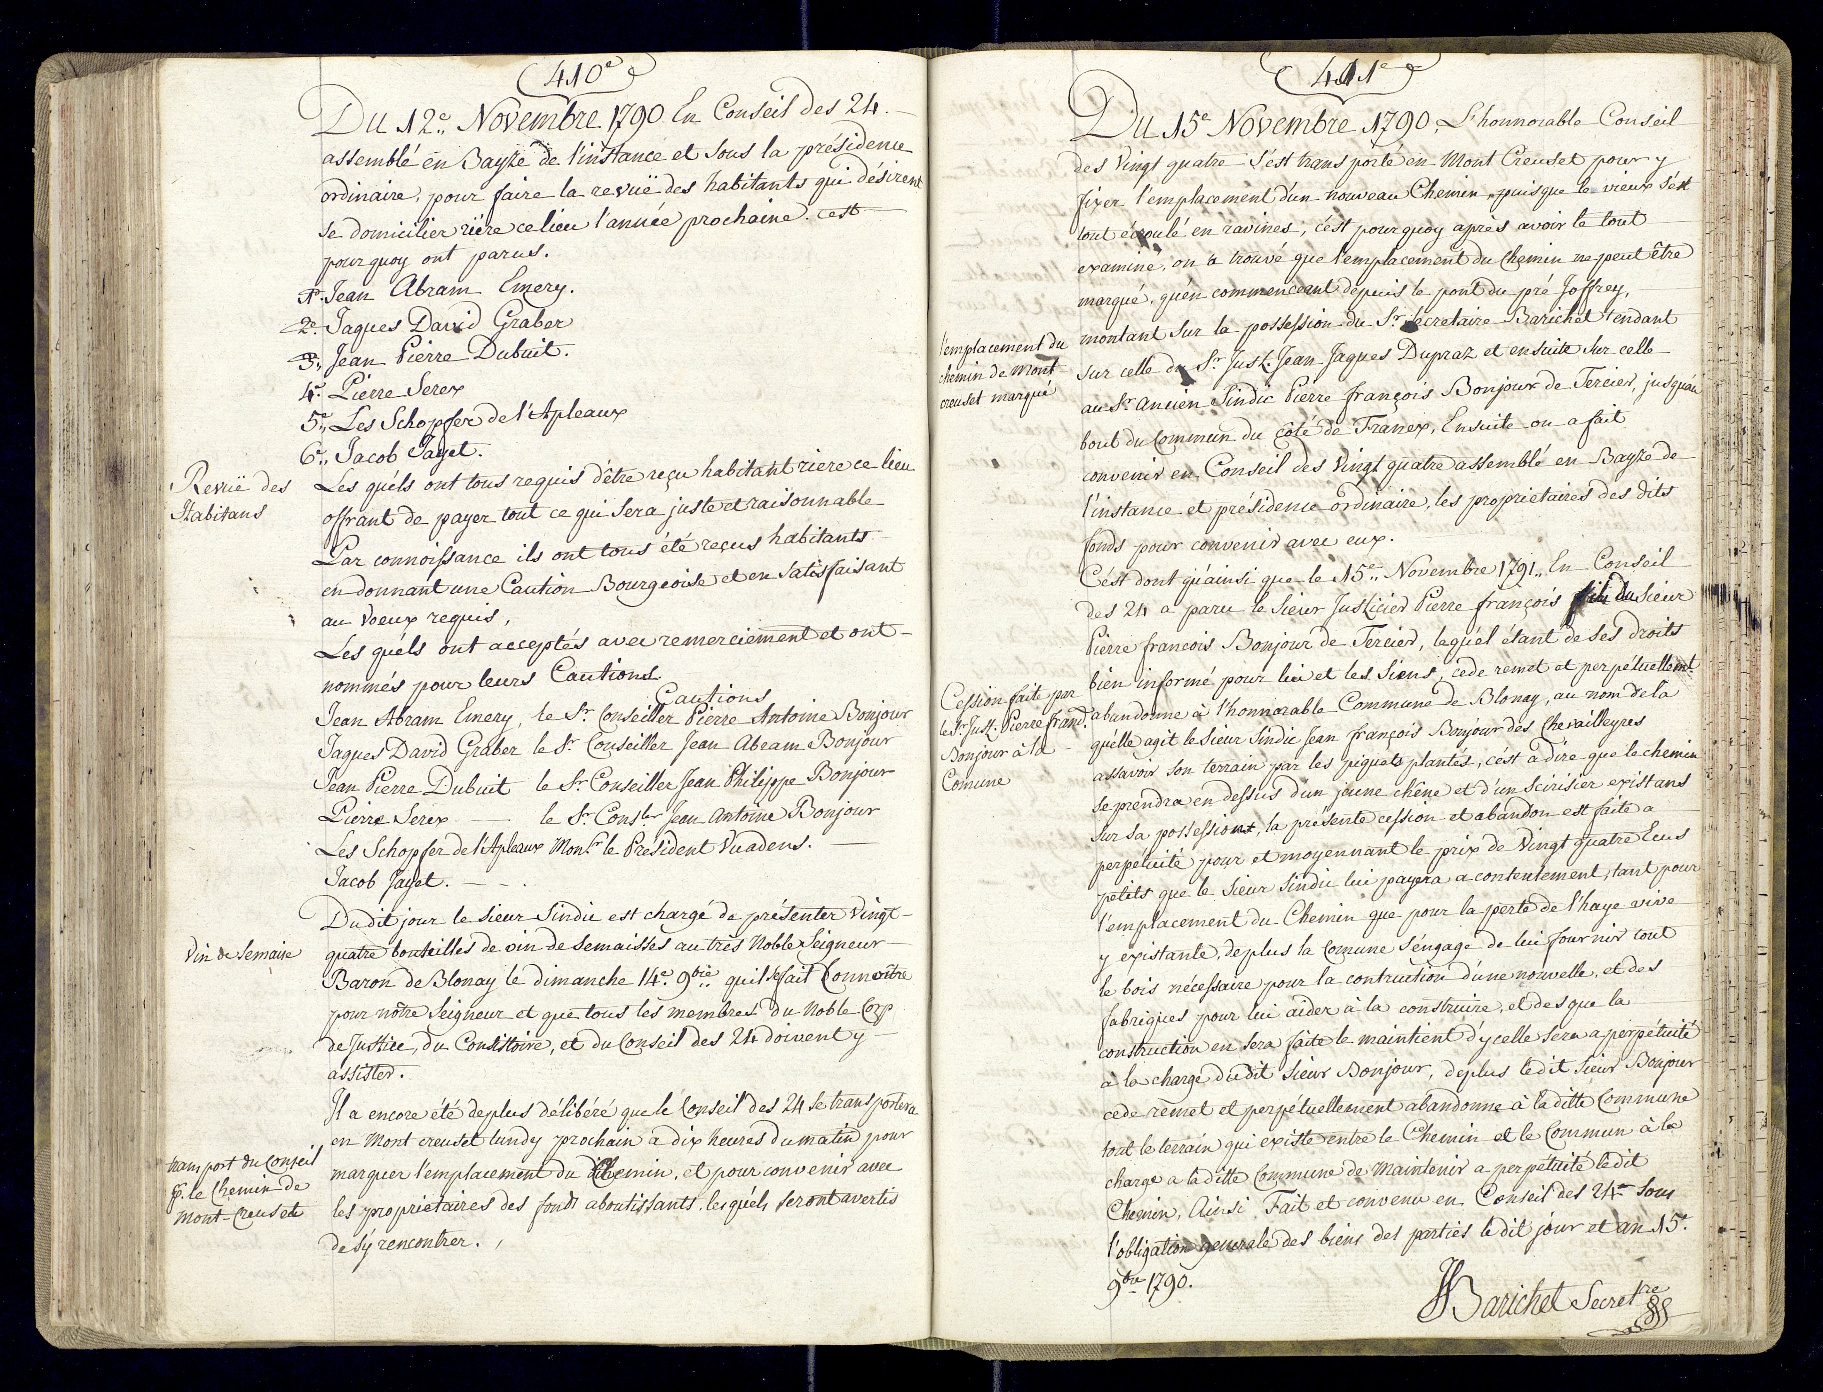 410e
Du 12e Novembre 1790 En Conseil des 24.
assemblé en Bayze de l'instance et sous la présidence
ordinaire, pour faire la revuë des habitants qui désirent
se domicilier riére ce lieu l'année prochaine. cest
pourquoy ont parus.
1°. Jean Abram Emery.
2°. Jaques David Graber
3°. Jean Pierre Dubuit.
4°. Pierre Serex
5°. Les Schopfer de l'Apleaux
6°. Jacob Jayet.
Revuë des
Habitans
Les quéls ont tous requis d'être reçu habitant riere ce lieu
offrant de payer tout ce qui sera juste et raisonnable
Par connoissance ils ont tous été reçus habitants
en donnant une Caution Bourgeoise et en satisfaisant
au Voeux requis,
Les quéls ont acceptés avec remerciement et ont
nommés pour leurs Cautions
Cautions
Jean Abram Emery, le Sr. Conseiller Pierre Antoine Bonjour
Jaques David Graber le Sr. Conseiller Jean Abram Bonjour
Jean Pierre Dubuit le Sr. Conseiller Jean Philippe Bonjour
Pierre Serex — le Sr. Conslr Jean Antoine Bonjour
Les Schopfer de l'Apleaux Monsr. le Président Vuadens.
Jacob Jayet.
Vin de Semaise
Dudit jour le Sieur Sindic est chargé de présenter Vingt
quatre bouteilles de vin de Semaisses au très Noble Seigneur
Baron de Blonay le dimanche 14e. 9bre quil se fait Connoître
pour nôtre Seigneur et que tous les membres du Noble Corp
de Justice, du Consistoire, et du Conseil des 24 doivent y
assister.
transport du Conseil
p. le Chemin de
Mont-Creuset
Il a encore été deplus délibéré que le Conseil des 24 se transportera
en Mont creuset lundy prochain a dix heures du matin pour
marquer l'emplacement du Chemin, et pour convenir avec
les proprietaires des fonds aboutissants, lesquéls seront avertis
de s'y rencontrer.
411e
Du 15e Novembre 1790, L'honnorable Conseil
des Vingt quatre s'est transporté en Mont Creuset pour y
fixer l'emplacement d'un nouveau Chemin, puisque le vieux s'est
tout écroulé en ravines, c'ést pourquoy après avoir le tout
examiné, on a trouvé que l'emplacement du Chemin ne peut être
marqué, qu'en commenceant depuis le pont du pré Joffrey,
l'emplacement du
chemin de Mont
creuset marqué
montant sur la possession du Sr. Secretaire Barichet tendant
sur celle du Sr. Just. Jean Jaques Dupraz et ensuite sur celle
au Sr. ancien Sindic Pierre françois Bonjour de Tercier, jusqu'au
bout du Commun du côté de Franex, Ensuite on a fait
convenir en Conseil des Vingt quatre assemblé en Bayze de
l'instance et présidence ordinaire, les proprietaires des dits
fonds pour convenir avec eux.
C'ést dont qu'ainsi que le 15e. Novembre 1791. En Conseil
des 24 a paru le Sieur Justicier Pierre françois fils du Sieur
Pierre francois Bonjour de Tercier, lequél étant de ses droits
bien informé pour lui et les siens, cede remet et perpétuellemt
Cession faite par
le Sr. Just. Pierre frans.
Bonjour à la
Comune
abandonne à l'honnorable Commune de Blonay, au nom de la
quélle agit le Sieur Sindic Jean françois Bonjour des Chevailleyres
assavoir son terrain par les piquets plantés, c'ést à dire que le chemin
se prendra en dessus d'un jeune chêne et d'un Scirisier existans
sur sa possession, la présente cession et abandon est faite a
perpétuité pour et moyennant le prix de Vingt quatre Ecus
petits que le Sieur Sindic lui payera a contentement, tant pour
l'emplacement du Chemin que pour la perte de l'haye vive
y existante, deplus la Comune s'éngage de lui fournir tout
le bois nécessaire pour la contruction d'une nouvelle, et des
fabriques pour lui aider à la construire, et des que la
construction en sera faite le maintient d'ycelle sera a perpétuité
à la charge dudit Sieur Bonjour, deplus ledit Sieur Bonjour
cede remet et perpétuellement abandonne à la ditte Commune
tout le terrain qui existe entre le Chemin et le Commun à la
charge a la ditte Commune de Maintenir a perpétuité ledit
Chemin, Ainsi Fait et convenu en Conseil des 24 sous
l'obligation generale des biens des parties le dit jour et an 15e.
9bre 1790.
Barichet Secretre